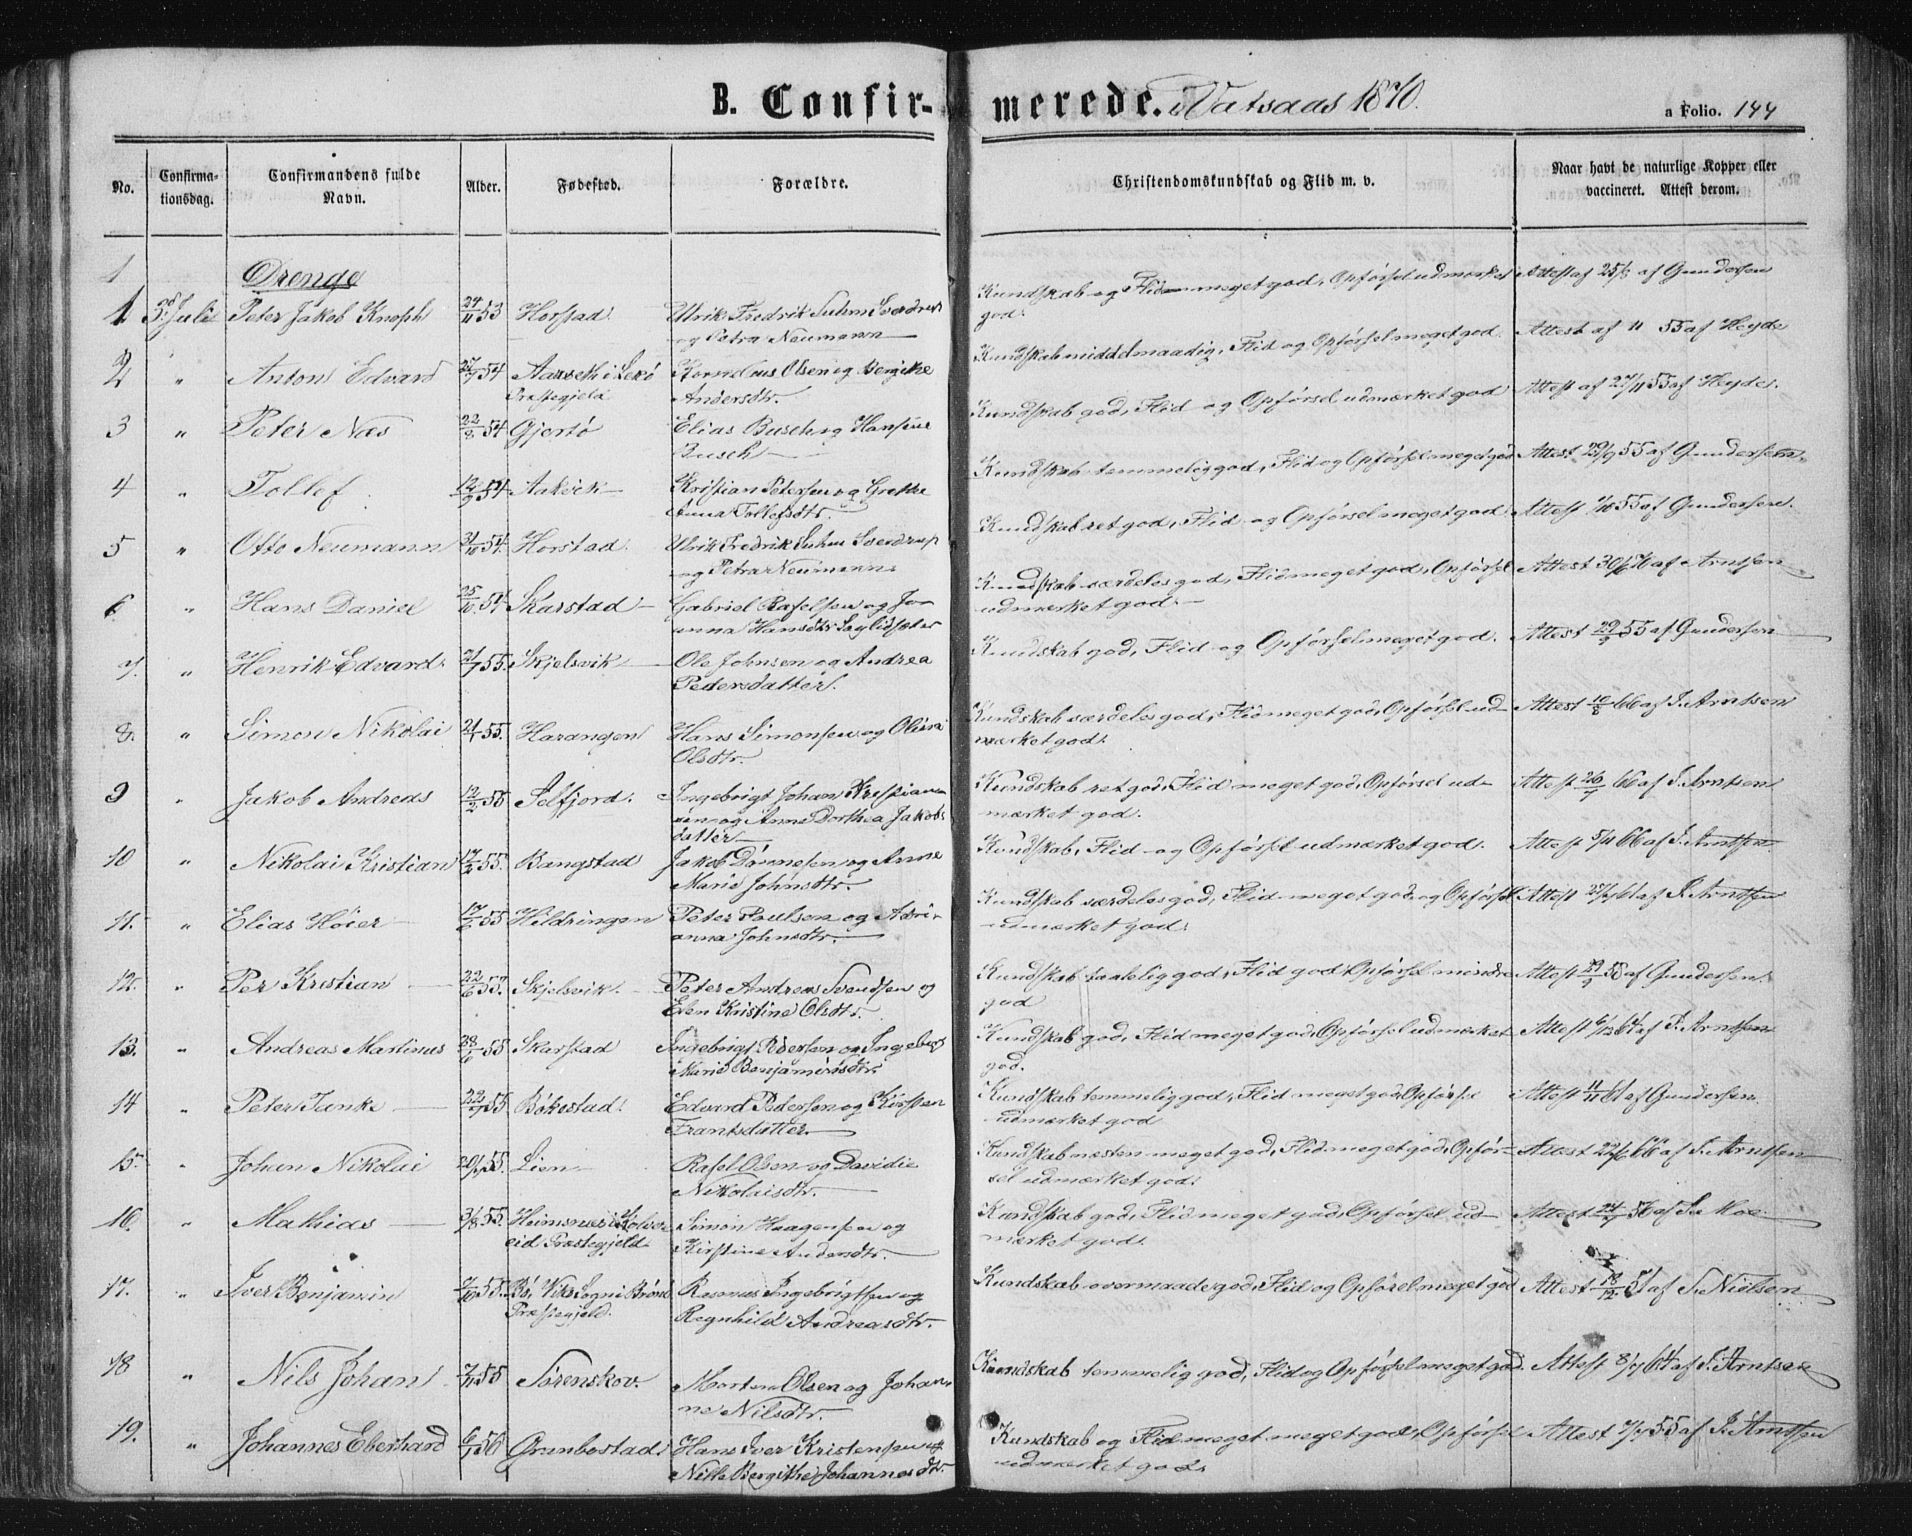 B. Confirmerede. i Vatsaas 1870.
a Folio. 144
No.
Confirma-
tionsdag.
Confirmandens fulde
Navn.
Alder.
Fødested.
Forældre.
Christendomskundskab og Flid m. v.
Naar havt de naturlige Kopper eller
vaccineret. Attest derom.
Drenge
1 3 Juli Peter Jakob Knoph 24/11 53 Horstad Ulrik Fredrik Suhm Sverdrup
og Petra Neumann
Kundskab og Flid meget god, Opførsel udmærket
god.
Attest af 25/ af Gundersen
2 " Anton Edvard 27/7 54 Aarseth i Lekø
Præstegjeld
Kornelius Olsen og Bergitte
Andersdtr.
Kundskab middelmaadig, Flid og Opførsel meget god.
Attest af 11 55 af Heyde
3 " Peter Næs 22/8 54 Gjertø Elias Busch og Hansine
Busch
Kundskab god, Flid og Opførsel udmærket god
Attest af 27/11 55 af Heyde.
4 " Tollef 12/9 54 Aakvik Kristian Petersen og Grethe
Anna Tollefsdtr.
Kundskab temmelig god, Flid og Opførsel meget god
Attest 29/9 55 af Gundersen
5 " Otto Neumann 31/10 54. Horstad. Ulrik Fredrik Suhm Sverdrup
og Petra Neumann
Kundskab ret god, Flid og Opførsel meget god
Attest 1/10 55 af Gundersen.
6 " Hans Daniel 25/10 54 Skarstad Gabriel Rafelsen og Jo-
anna Hansdtr
Kundskab særdeles god, Flid meget god, Opførsel
udmærket god.
Attest 30/ af Arntsen
7. " Henrik Edvard 21/7 55. Skjelsvik Ole Johnsen og Andrea
Pedersdatter.
Kundskab god, Flid og Opførsel meget god.
Attest 29/9 55 af Gundersen
8. " Simon Nikolai 21/1 55. Harangen Hans Simonsen og Olina
Olsdtr.
Kundskab særdeles god, Flid meget god, Opførsel ud-
mærket god.
Attest 10/8 66 af J. Arntsen
9 " Jakob Andreas 12/2 55 Selfjord. Ingebrigt Johan Kristian-
sen og Anne Dorthea Jakobs
datter
Kundskab ret god, Flid meget god, Opførsel ud-
mærket god.
Attest 26/7 66 af J. Arntsen
10 " Nikolai Kristian 17/2 55. Bangstad Jakob Dønnesen og Anne
Marie Johnsdtr.
Kundskab, Flid og Opførsel udmærket god.
Attest 5/11 66 af J. Arntsen.
11. " Elias Høier 17/6 55 Hildringen Peter Paulsen og Adri-
anna Johnsdtr.
Kundskab særdeles god, Flid meget god og Opførsel
udmærket god.
Attest 27/7 61 af J. Arntsen
12. " Per Kristian 22/6 55. Skjelsvik. Peter Andreas Svendsen og
Elen Kristine Olsdtr.
Kundskab taalelig god, Flid god, Opførsel mindre
god
Attest 29/9 58 af Gundersen.
13. " Andreas Martinus 28/6 55 Skarstad Ingebrigt Roersen og Ingeborg
Marie Benjaminsdtr.
Kundskab god, Flid meget god, Opførsel udmærket
god.
Attest 6/12 64 af J. Arntsen
14 " Peter Tanke 22/7 55 Bøkestad. Edvard Pedersen og Kirsten
Frantsdatter
Kundskab temmelig god, Flid meget god, Opførsel
udmærket god
Attest 11/11 61 af Gundersen.
15. " Johan Nikolai 20/7 55. Lien Rafel Olsen og Davidie
Nikolaisdtr.
Kundskab næsten meget god, Flid meget god, Opfør-
sel udmærket god.
Attest 22/6 66 af J. Arntsen
16. " Mathias 3/8 55. Heimsnes i Kolver
eid Præstegjeld
Simon Haagensen og
Kirstine Andersdtr.
Kundskab god, Flid meget god, Opførsel ud-
mærket god.
Attest 24/7 56 af
17. " Iver Benjamin 7/10 55. Bø, Viks Sogn i Brønø
Præstegjeld.
Rasmus Ingebrigtsen og
Regnhild Andreasdtr.
Kundskab overmaade god, Flid og Opførsel meget god
Attest 18/12 57 af S. Nielsen
18 " Nils Johan 7/11 55 Sørenskov. Morten Olsen og Johan-
ne Nilsdtr.
Kundskab temmelig god, Flid og Opførsel meget god.
Attest 8/7 64 af J. Arntsen
19. " Johannes Eberhard 6/1 56 Grunbostad Hans Iver Kristensen og
Nille Bergithe Johannesdtr.
Kundskab og Flid meget meget god, Opførsel
udmærket god.
Attest 7/7 55 af J. Arntsen